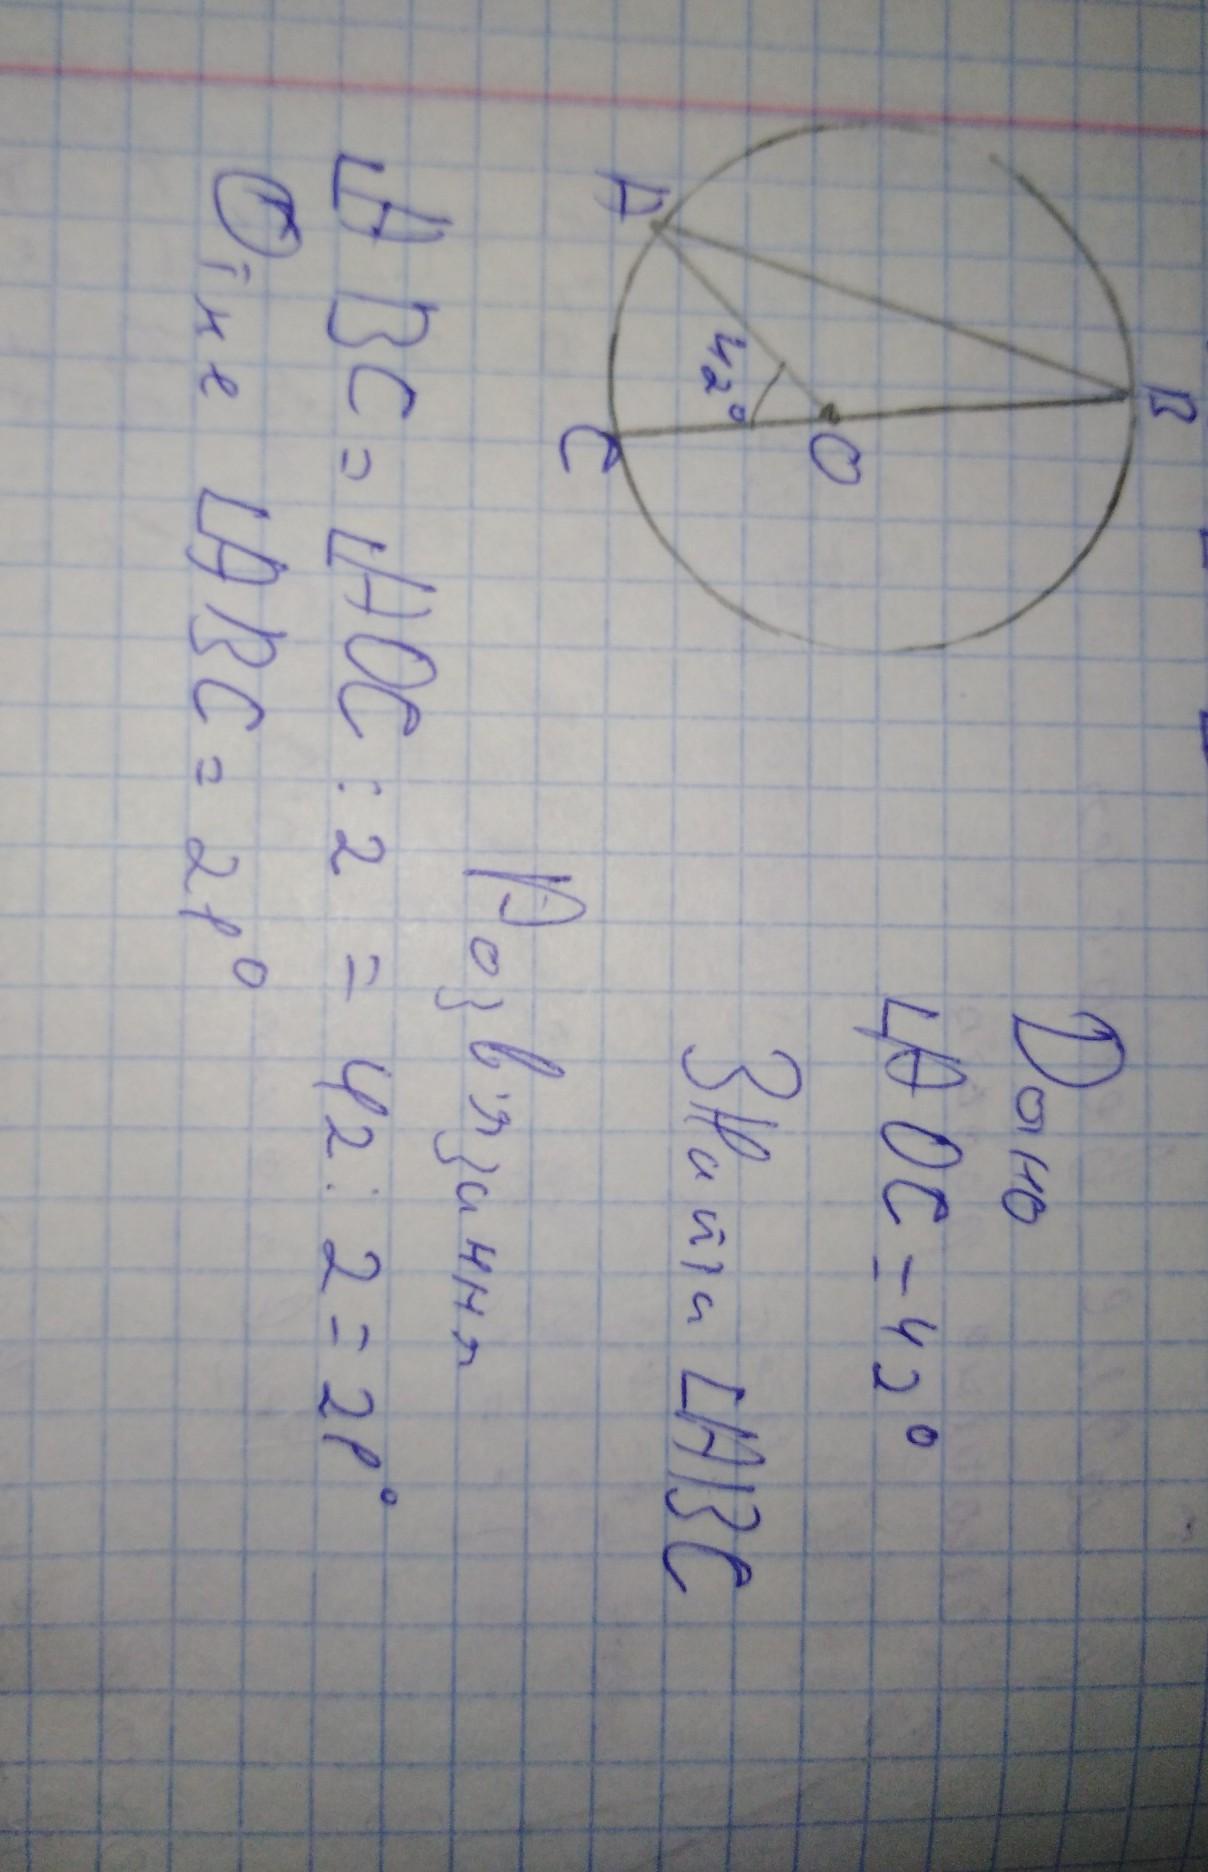 B
A
O
42°
C
Дано
∠AOC = 42°
Знайти ∠ABC
Розв'язання
∠ABC = ∠AOC : 2 = 42 : 2 = 21°
Отже ∠ABC = 21°